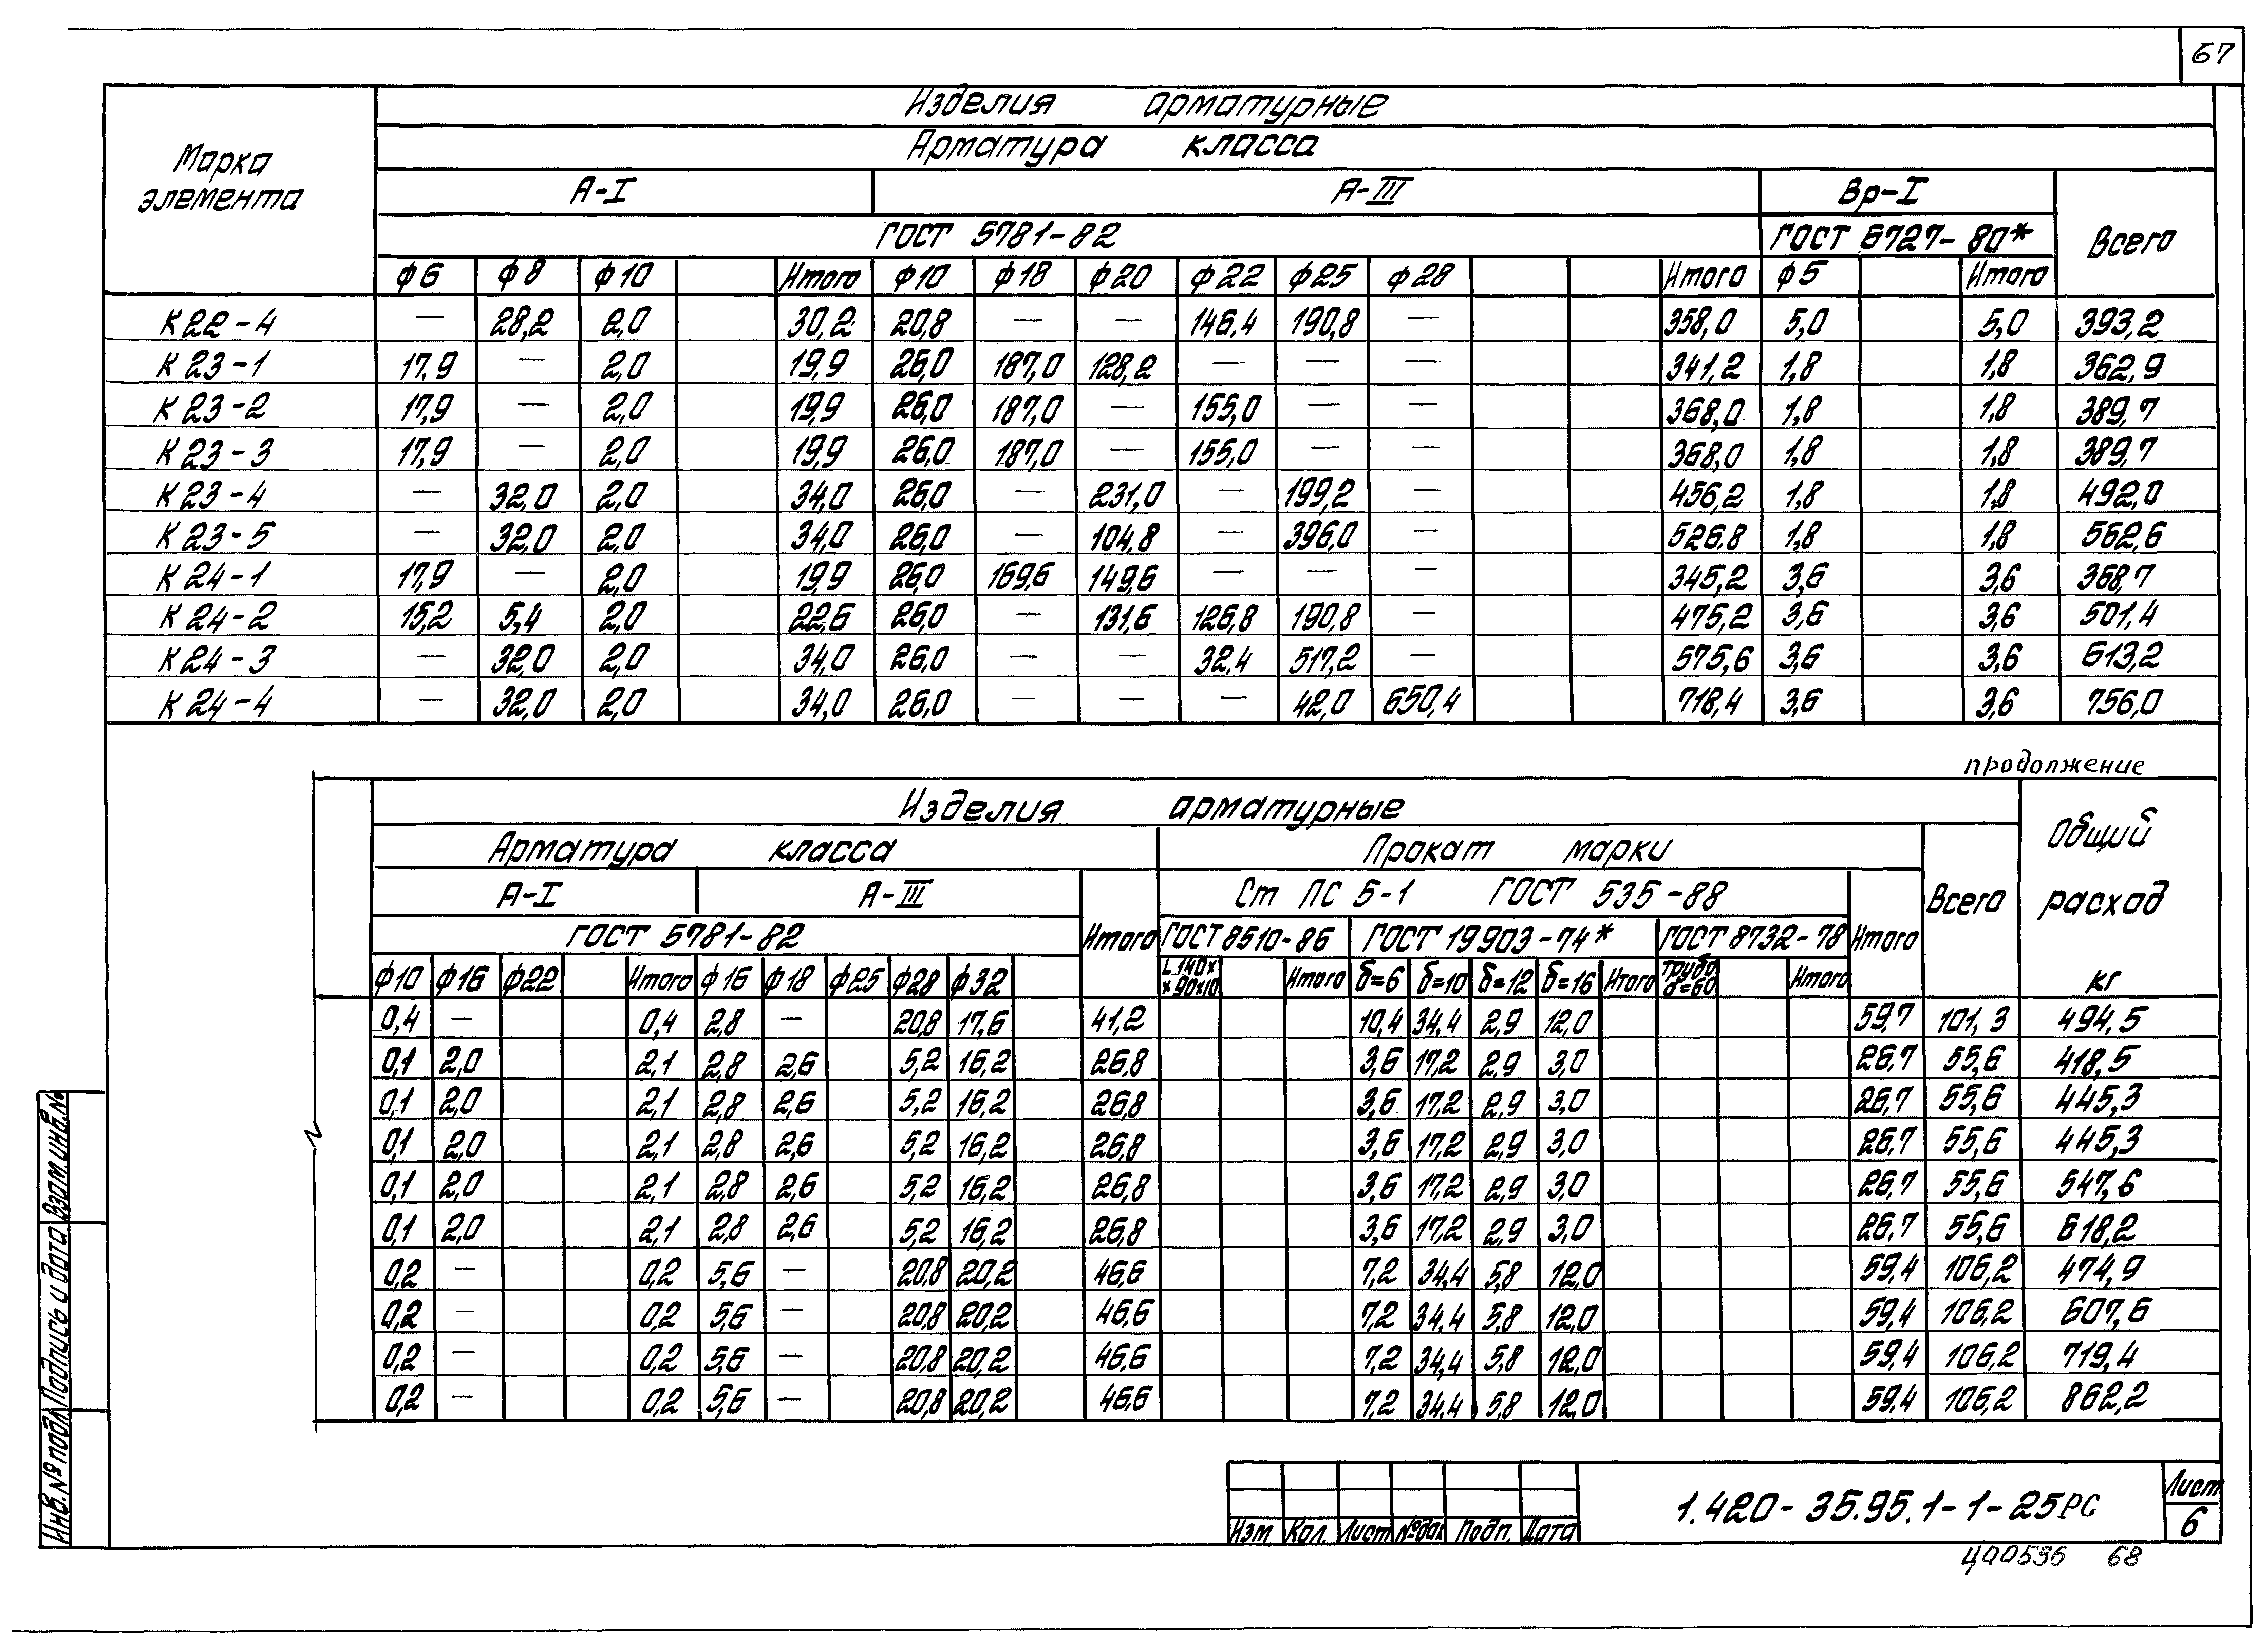 67
Изделия арматурные
Арматура класса
Марка элемента
А-I А-III Вр-I
ГОСТ 5781-82 ГОСТ 6727-80* Всего
Ф6 Ф8 Ф10 Итого Ф10 Ф18 Ф20 Ф22 Ф25 Ф28 Итого Ф5 Итого
К22-4 — 28,2 2,0 30,2 20,8 — — 146,4 190,8 — 358,0 5,0 5,0 393,2
К23-1 17,9 — 2,0 19,9 26,0 187,0 128,2 — — — 341,2 1,8 1,8 362,9
К23-2 17,9 — 2,0 19,9 26,0 187,0 — 155,0 — — 368,0 1,8 1,8 389,7
К23-3 17,9 — 2,0 19,9 26,0 187,0 — 155,0 — — 368,0 1,8 1,8 389,7
К23-4 — 32,0 2,0 34,0 26,0 — 231,0 — 199,2 — 456,2 1,8 1,8 492,0
К23-5 — 32,0 2,0 34,0 26,0 — 104,8 396,0 — 526,8 1,8 1,8 562,6
К24-1 17,9 — 2,0 19,9 26,0 169,6 149,6 — — — 345,2 3,6 3,6 368,7
К24-2 15,2 5,4 2,0 22,6 26,0 — 131,6 126,8 190,8 — 475,2 3,6 3,6 501,4
К24-3 — 32,0 2,0 34,0 26,0 — — 32,4 517,2 — 575,6 3,6 3,6 613,2
К24-4 — 32,0 2,0 34,0 26,0 — — — 42,0 650,4 718,4 3,6 3,6 756,0
продолжение
Изделия арматурные Общий расход кг
Арматура класса Прокат марки
А-I А-III Ст ПС 5-1 ГОСТ 535-88 Всего
ГОСТ 5781-82 Итого ГОСТ 8510-86 ГОСТ 19903-74* ГОСТ 8732-78 Итого
Ф10 Ф16 Ф22 Итого Ф16 Ф18 Ф25 Ф28 Ф32 L 140× ×90×10 Итого δ=6 δ=10 δ=12 δ=16 Итого труба d=60 Итого
0,4 — 0,4 2,8 — 20,8 17,6 41,2 10,4 34,4 2,9 12,0 59,7 101,3 494,5
0,1 2,0 2,1 2,8 2,6 5,2 16,2 26,8 3,6 17,2 2,9 3,0 26,7 55,6 418,5
0,1 2,0 2,1 2,8 2,6 5,2 16,2 26,8 3,6 17,2 2,9 3,0 26,7 55,6 445,3
0,1 2,0 2,1 2,8 2,6 5,2 16,2 26,8 3,6 17,2 2,9 3,0 26,7 55,6 445,3
0,1 2,0 2,1 2,8 2,6 5,2 16,2 26,8 3,6 17,2 2,9 3,0 26,7 55,6 547,6
0,1 2,0 2,1 2,8 2,6 5,2 16,2 26,8 3,6 17,2 2,9 3,0 26,7 55,6 618,2
0,2 — 0,2 5,6 — 20,8 20,2 46,6 7,2 34,4 5,8 12,0 59,4 106,2 474,9
0,2 — 0,2 5,6 — 20,8 20,2 46,6 7,2 34,4 5,8 12,0 59,4 106,2 607,6
0,2 — 0,2 5,6 — 20,8 20,2 46,6 7,2 34,4 5,8 12,0 59,4 106,2 719,4
0,2 — 0,2 5,6 — 20,8 20,2 46,6 7,2 34,4 5,8 12,0 59,4 106,2 862,2
Инв.№ подл. Подпись и дата Взам.инв.№
Изм. Кол. Лист №док Подп. Дата
1.420-35.95.1-1-25РС
Лист
6
Ц00536 68